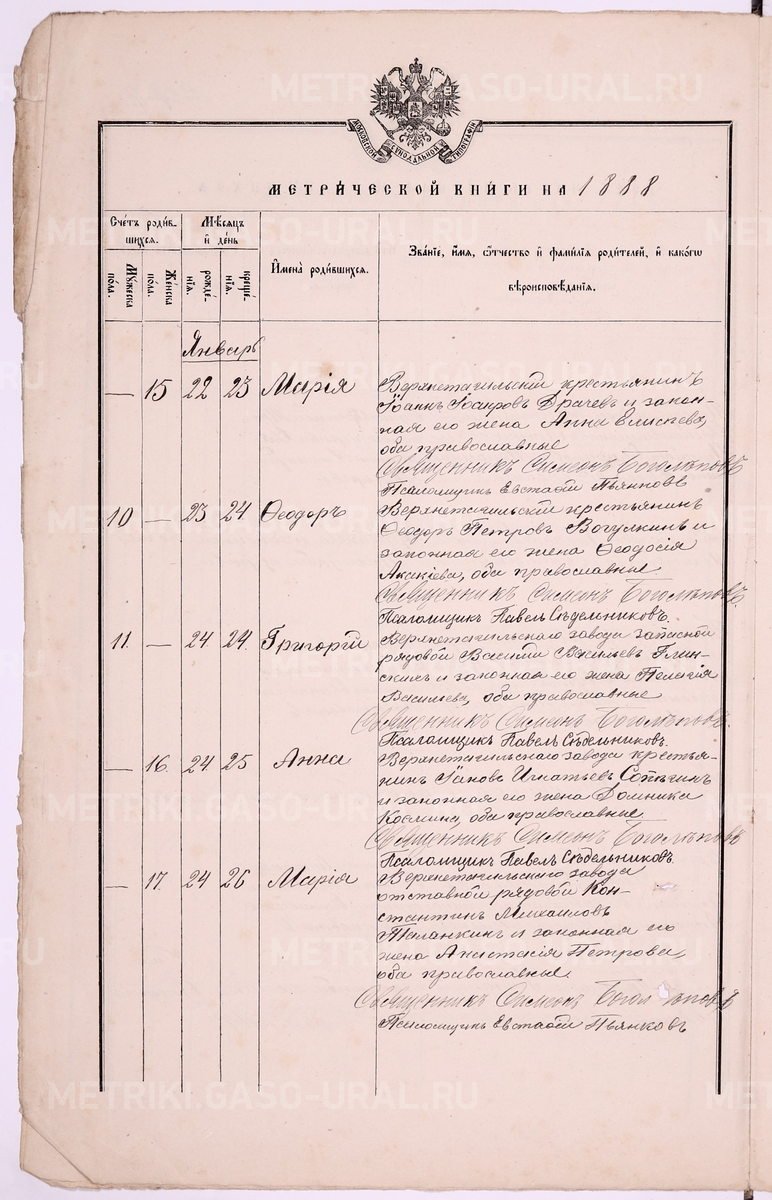 МОСКОВСКОЙ СѴНОДАЛЬНОЙ ТИПОГРАФІИ
МЕТРИ́ЧЕСКОЙ КНИ́ГИ НА 1888
Сче́тъ роди́в-
шихся.
Му́жеска
по́ла.
Же́нска
по́ла.
Мѣ́сяцъ
и҆ де́нь
рожде́-
нїѧ.
креще́-
нїѧ.
И҆мена̀ роди́вшихся.
Зва́нїе, и҆́мя, ѻ҆́тчество и҆ фами́лїѧ роди́телей, и҆ како́гѡ
вѣроисповѣ́данїѧ.
Январь
— 15 22 23 Марія
Верхнетагильскій крестьянинъ
Іоаннъ Іоакимовъ Драчев и закон-
ная его жена Анна Елисѣева,
оба православные
Священникъ Симеонъ Боголѣповъ
Псаломщикъ Евстафій Пьянковъ
10 — 23 24 Ѳеодоръ
Верхнетагильскій крестьянинъ
Ѳеодоръ Петровъ Вогулкинъ и
законная его жена Ѳеодосія
Акакіева, оба православные
Священникъ Симеонъ Боголѣповъ.
Псаломщикъ Павелъ Сѣдельниковъ.
11. — 24 24. Григорій
Верхнетагильскаго завода запасной
рядовой Василій Васильевъ Глин-
скихъ и законная его жена Пелагія
Васильева, оба православные
Священникъ Симеонъ Боголѣповъ.
Псаломщикъ Павелъ Сѣдельниковъ.
— 16. 24 25 Анна
Верхнетагильскаго завода крестья-
нинъ Іаковъ Игнатьевъ
и законная его жена Домника
Космина, оба православные
Священникъ Симеонъ Боголѣповъ
Псаломщикъ Павелъ Сѣдельниковъ.
— 17. 24 26 Марія
Верхнетагильскаго завода
отставной рядовой Кон-
стантинъ Михаиловъ
и законная его
жена Анастасія Петрова,
оба православные.
Священникъ Симеонъ Боголѣповъ
Псаломщикъ Евстафій Пьянковъ
METRIKI.GASO-URAL.RU